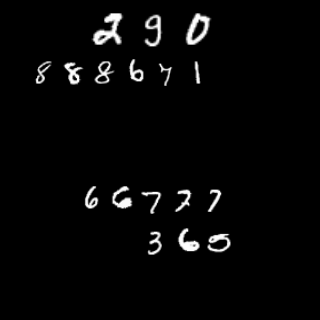 290
888671
66777
365